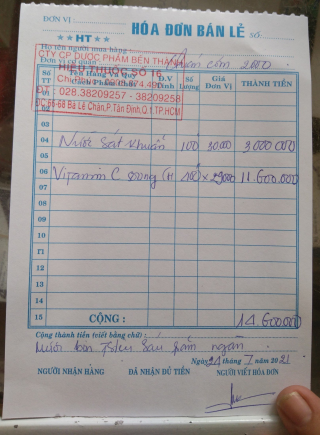 ĐƠN VỊ :
HÓA ĐƠN BÁN LẺ SỐ:
** HT **
Họ tên người mua hàng :
CTY CP DƯỢC PHẨM BẾN THÀNH
Đơn vị cơ quan
HIỆU THUỐC SỐ 16
Số TT Tên Hàng Và Quy Cách Phẩm Chất Đ.V Tính Số Lượng Giá Đơn Vị THÀNH TIỀN
ĐT : 028.38209257 - 38209258
ĐC 66-68 Bà Lê Chân,P.Tân Định,Q.1 TP.HCM
02
03
04 Nước sát khuẩn 100 30000 3000000
05
06 Vitamin C 400 x 29000 11.600.000
07
08
09
10
11
12
13
14
15 CỘNG : 14.600.000
Cộng thành tiền (viết bằng chữ) :
Mười bốn triệu sáu trăm ngàn
Ngày 24 tháng 7 năm 2021
NGƯỜI NHẬN HÀNG ĐÃ NHẬN ĐỦ TIỀN NGƯỜI VIẾT HÓA ĐƠN